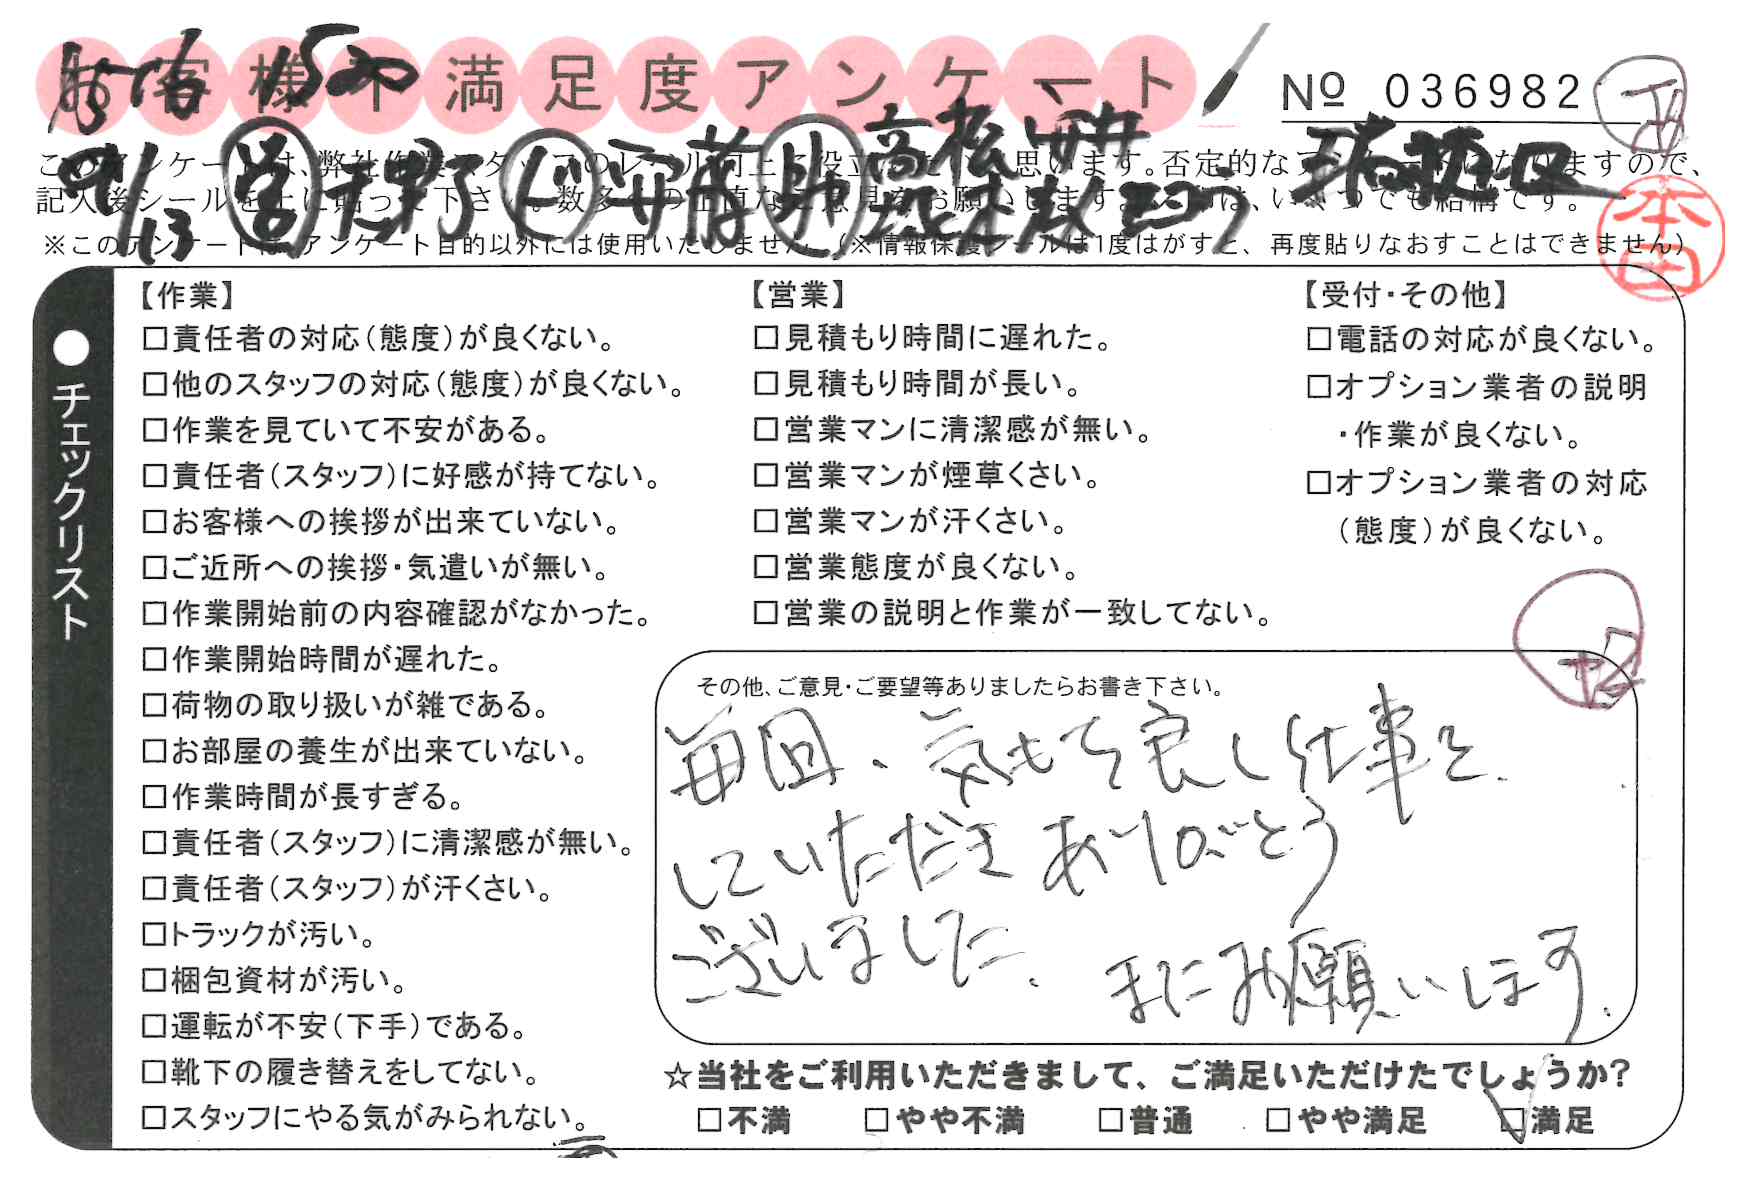 お客様不満足度アンケート
Nº 036982
このアンケートは、弊社作業スタッフのレベル向上に役立てたいと思います。否定的なアンケートになりますので、
記入後シールを上に貼って下さい。数多くの正直なご意見をお願いします。シールは、いくつでも結構です。
※このアンケートは、アンケート目的以外には使用いたしません。(※情報保護シールは1度はがすと、再度貼りなおすことはできません)
本田
●チェックリスト
【作業】
□責任者の対応(態度)が良くない。
□他のスタッフの対応(態度)が良くない。
□作業を見ていて不安がある。
□責任者(スタッフ)に好感が持てない。
□お客様への挨拶が出来ていない。
□ご近所への挨拶・気遣いが無い。
□作業開始前の内容確認がなかった。
□作業開始時間が遅れた。
□荷物の取り扱いが雑である。
□お部屋の養生が出来ていない。
□作業時間が長すぎる。
□責任者(スタッフ)に清潔感が無い。
□責任者(スタッフ)が汗くさい。
□トラックが汚い。
□梱包資材が汚い。
□運転が不安(下手)である。
□靴下の履き替えをしてない。
□スタッフにやる気がみられない。
【営業】
□見積もり時間に遅れた。
□見積もり時間が長い。
□営業マンに清潔感が無い。
□営業マンが煙草くさい。
□営業マンが汗くさい。
□営業態度が良くない。
□営業の説明と作業が一致してない。
【受付・その他】
□電話の対応が良くない。
□オプション業者の説明
・作業が良くない。
□オプション業者の対応
(態度)が良くない。
その他、ご意見・ご要望等ありましたらお書き下さい。
毎回、気もち良し仕事を
していただきありがとう
ございました。
またお願いします。
☆当社をご利用いただきまして、ご満足いただけたでしょうか?
□不満 □やや不満 □普通 □やや満足 □満足